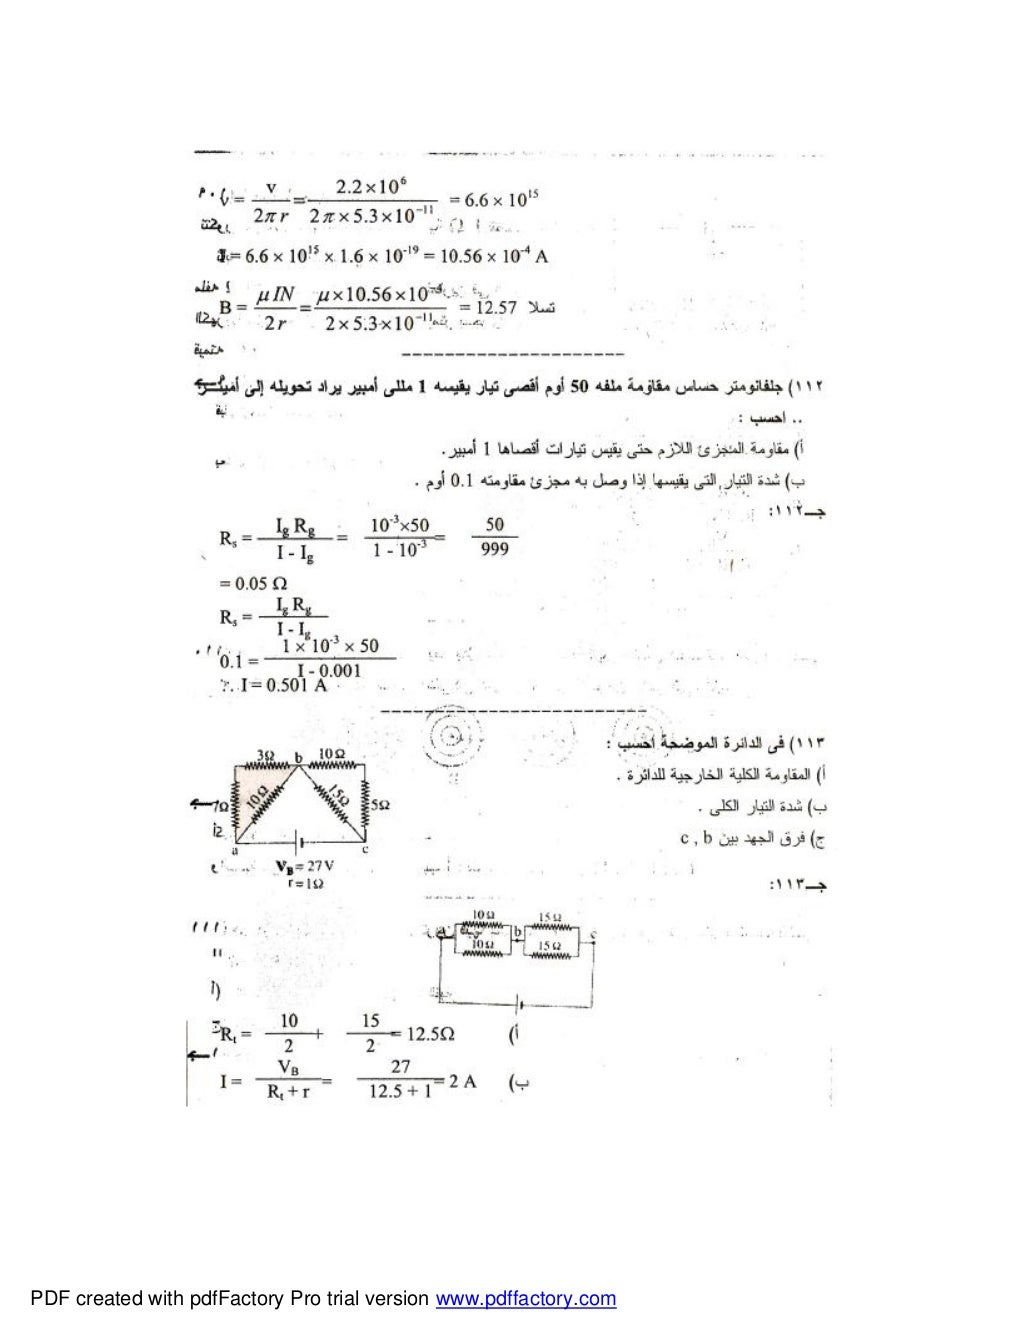 ν = v / 2π r = 2.2×10⁶ / 2π×5.3×10⁻¹¹ = 6.6 × 10¹⁵
I = 6.6 × 10¹⁵ × 1.6 × 10⁻¹⁹ = 10.56 × 10⁻⁴ A
B = μ IN / 2r = μ×10.56×10⁻⁴ / 2×5.3×10⁻¹¹ = 12.57 تسلا
١١٢) جلفانومتر حساس مقاومة ملفه 50 أوم أقصى تيار يقيسه 1 مللى أمبير يراد تحويله إلى أميتر
.. احسب :
أ) مقاومة المجزئ اللازم حتى يقيس تيارات أقصاها 1 أمبير.
ب) شدة التيار التى يقيسها إذا وصل به مجزئ مقاومته 0.1 أوم .
جـ١١٢:
Rₛ = I_g R_g / I - I_g = 10⁻³×50 / 1 - 10⁻³ = 50 / 999
= 0.05 Ω
Rₛ = I_g R_g / I - I_g
0.1 = 1 × 10⁻³ × 50 / I - 0.001
I = 0.501 A
١١٣) فى الدائرة الموضحة احسب :
أ) المقاومة الكلية الخارجية للدائرة .
ب) شدة التيار الكلى .
ج) فرق الجهد بين c , b
3Ω b 10Ω
7Ω 10Ω 15Ω 5Ω
a c
V_B = 27 V
r = 1Ω
جـ١١٣:
10Ω 15Ω
b c
10Ω 15Ω
أ) Rₜ = 10 / 2 + 15 / 2 = 12.5Ω
ب) I = V_B / Rₜ + r = 27 / 12.5 + 1 = 2 A
PDF created with pdfFactory Pro trial version www.pdffactory.com